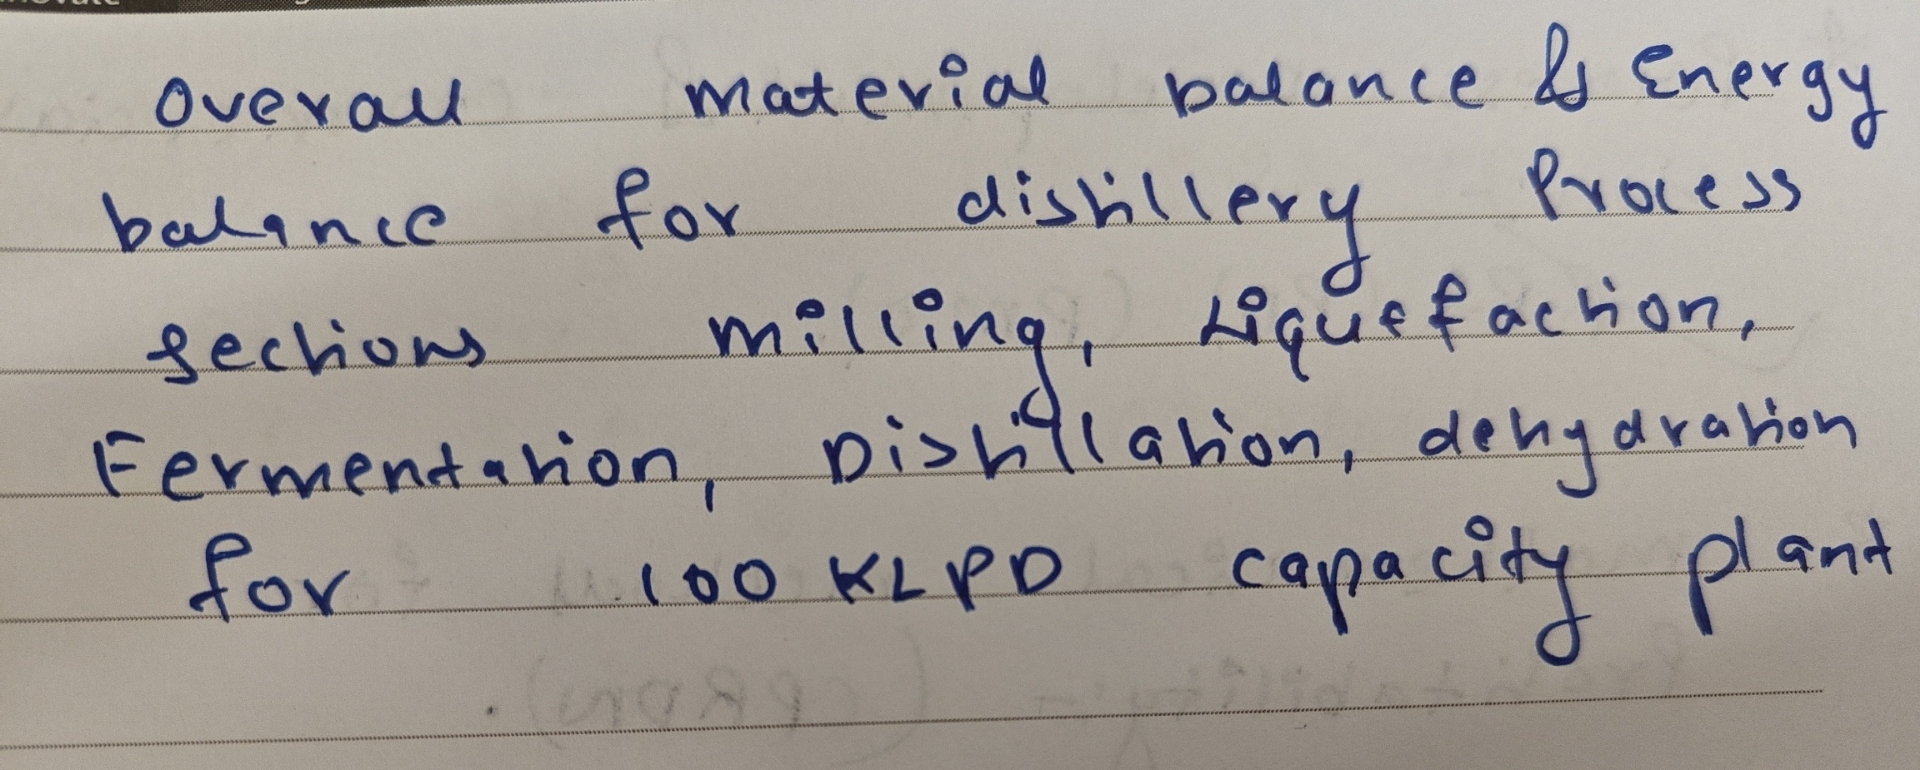 Overall material balance & Energy
balance for distillery Process
sections milling, Liquefaction,
Fermentation, Distillation, dehydration
for 100 KLPD capacity plant